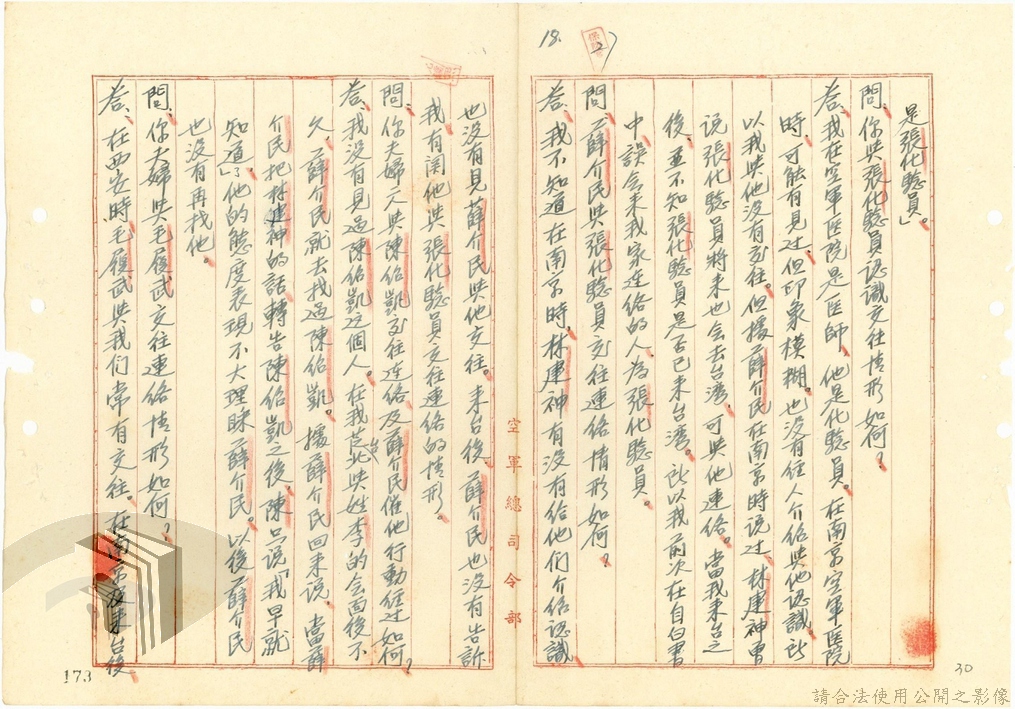 18.
是張化驗員。」
問、你與張化驗員認識交往情形如何？
答、我在空軍医院是医師、他是化驗員。在南京空軍医院
時、可能有見过、但印象模糊。也没有經人介绍與他認識、所
以我與他没有交往。但據薛介民在南京時説过、林建神曾
説張化驗員將来也会去台湾、可與他連络。當我来台之
後、並不知張化驗員是否已来台湾。所以我前次在自白書
中、誤会来我家連络的人、為張化驗員。
問、薛介民與張化驗員交往連络情形如何？
答、我不知道在南京時、林建神有没有给他们介绍認識
也没有見薛介民與他交往。来台後、薛介民也没有告訴
我有関他與張化驗員交往連络的情形。
問、你夫婦二人與陳绍凱交往連络、及薛介民催他行動經过如何？
答、我没有見過陳绍凱这個人。在我台北與姓李的会面後不
久、薛介民就去找過陳绍凱。據薛介民回来説、當薛
介民把林建神的話轉告陳绍凱之後、陳只説「我早就
知道」、他的態度表現不大理睬薛介民。以後薛介民
也没有再找他。
問、你夫婦與毛履武交往連络情形如何？
答、在西安時、毛履武與我们常有交往。在南京及来台後
空軍總司令部
173
30
請合法使用公開之影像